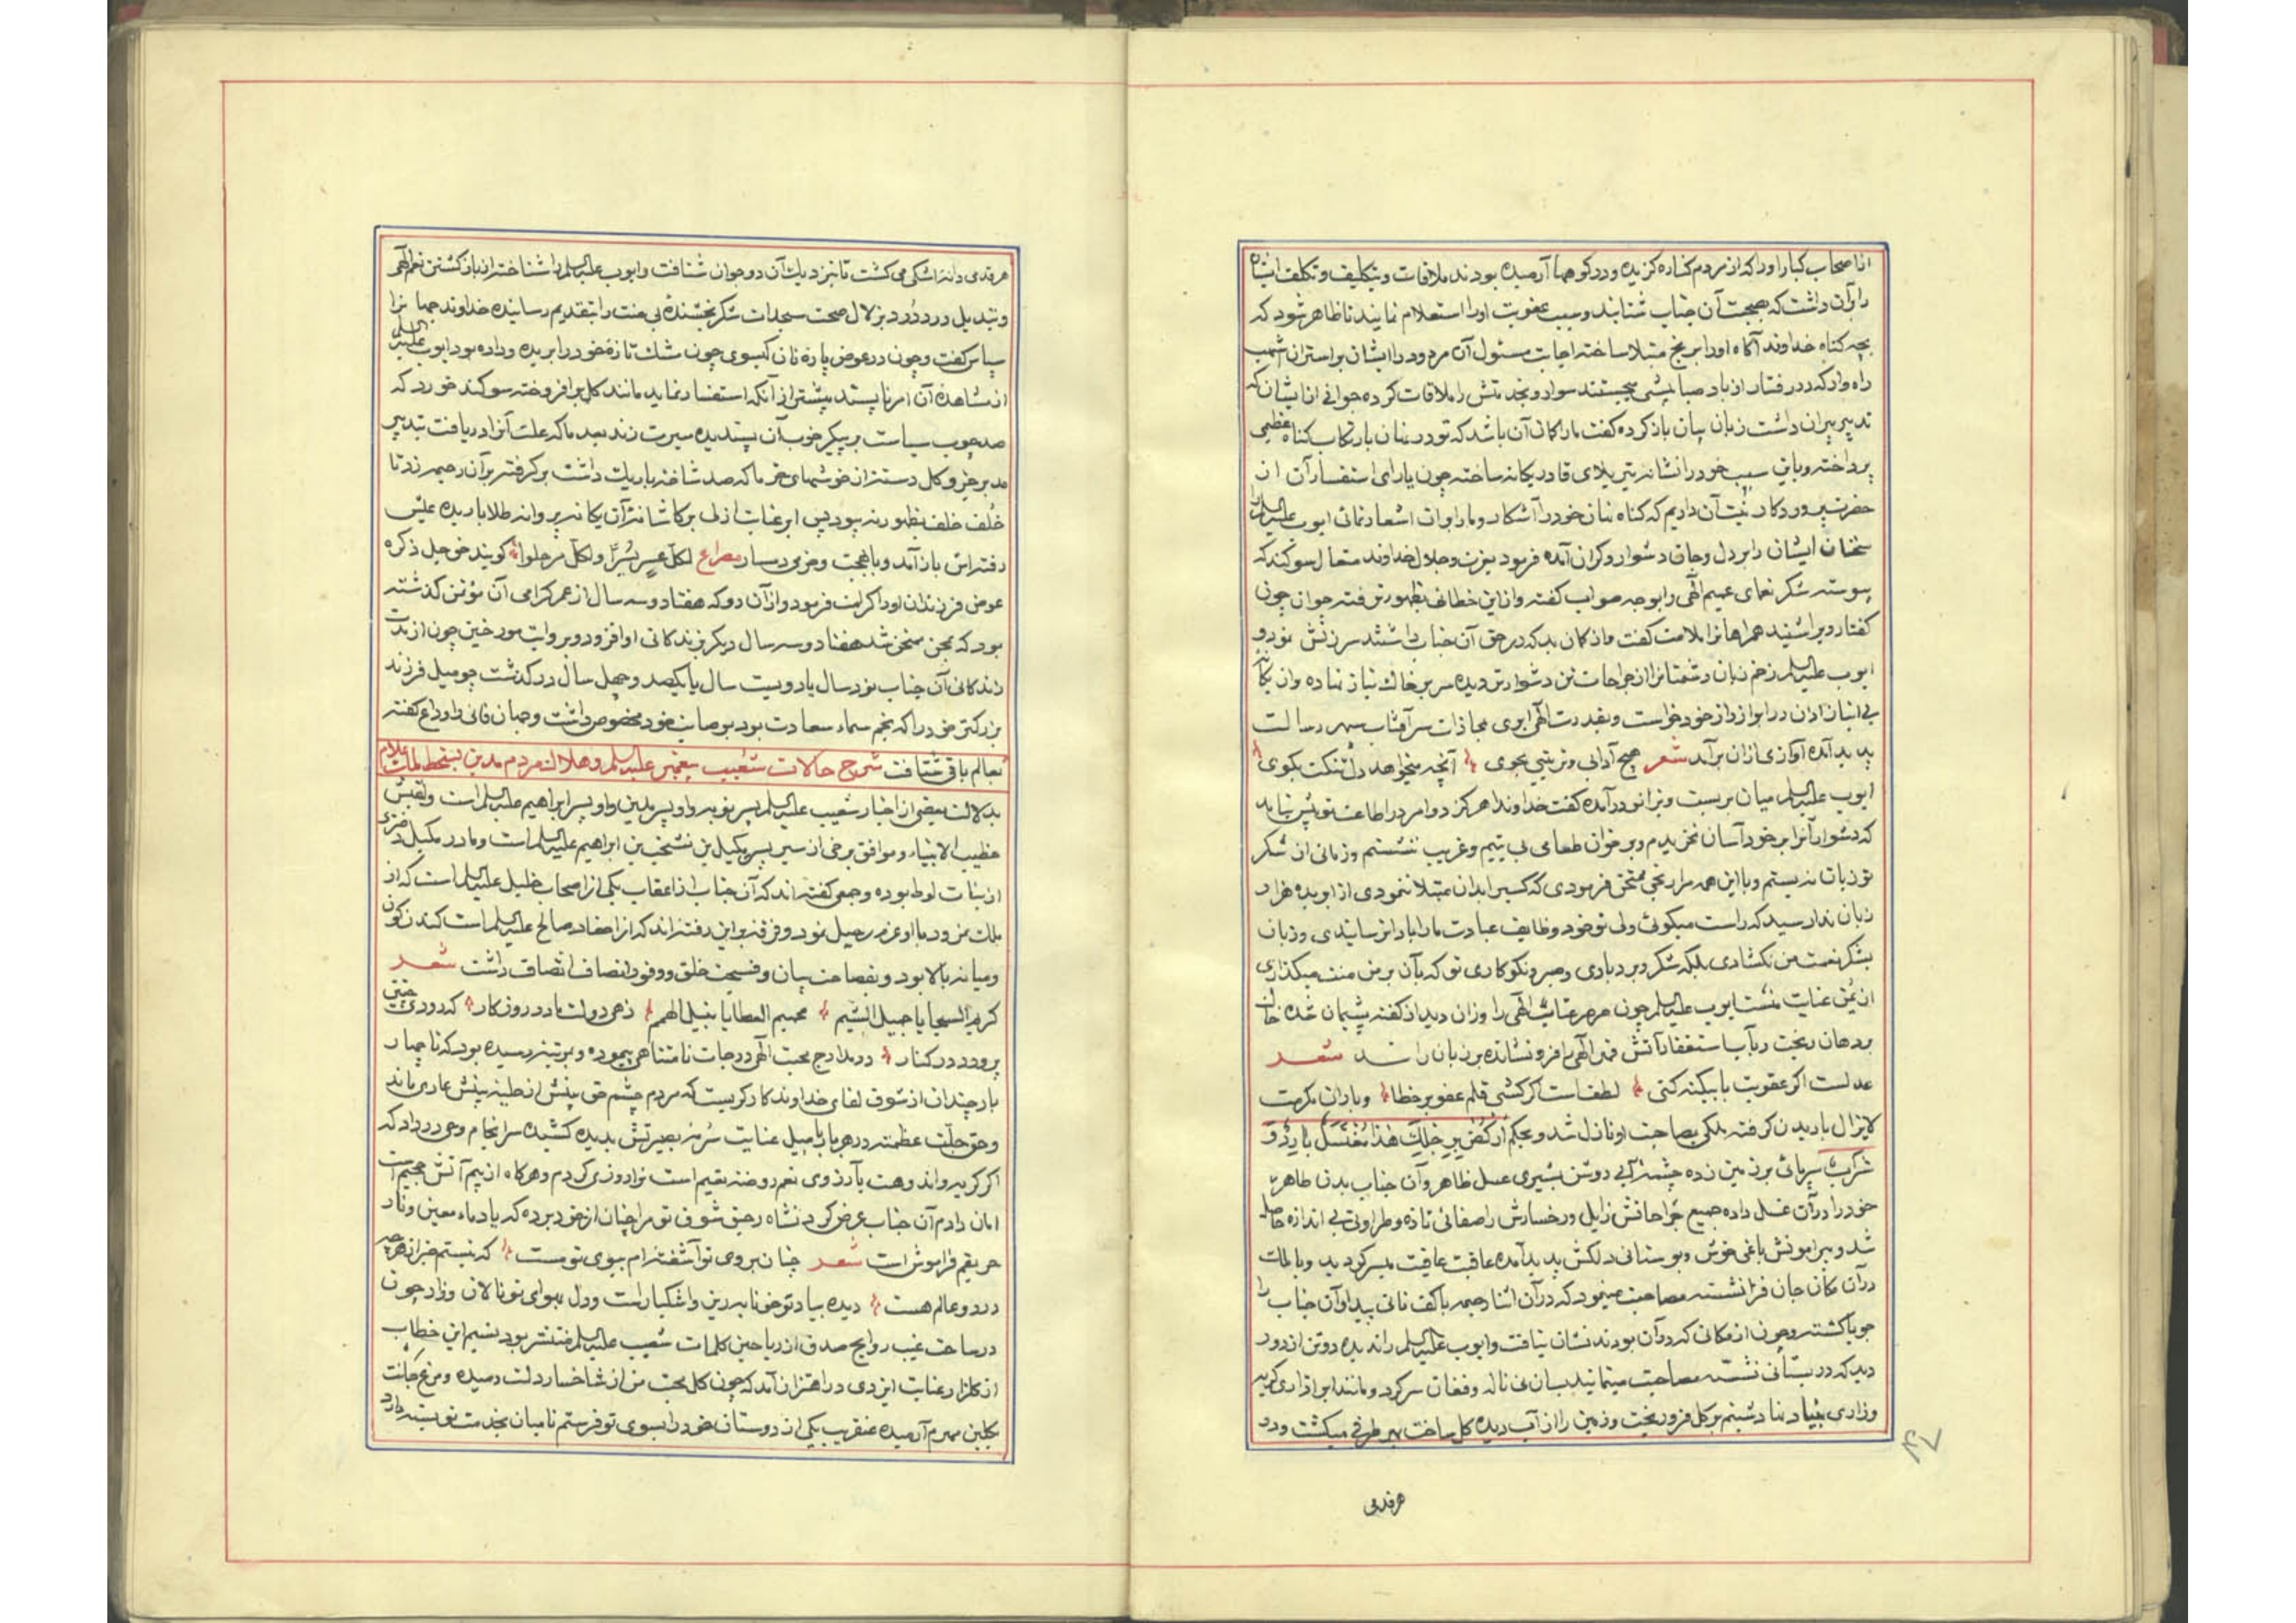 از اصحاب کبار او را که از مردم کناره گزیده و در کوهها آرمیده بودند ملاقات و تکلیف و تکلف ایشان
را بر آن داشت که بصحبت آن جناب شتابند و سبب عقوبت او را استعلام نمایند تا ظاهر شود که
بچه گناه خداوند آگاه او را برنج مبتلا ساخته اجابت مسئول آن مردود را ایشان بر استران اشهب
راه وار که در رفتار از باد صبا پیشی میجستند سوار و بخدمتش را ملاقات کرده جوانی از ایشان که
تدبیر پیران داشت زبان بیان باز کرده گفت ما را گمان آن باشد که تو در نهان بارتکاب گناه عظیمی
پرداخته و باین سبب خود را نشانه تیر بلای قادر یگانه ساخته چون یارای استفسار آن از
حضرت پروردگار نیست آن داریم که گناه نهان خود را آشکار و ما را بر آن اشعار نمائی ایوب علیه السلام را
سخنان ایشان را بر دل و جان دشوار و گران آمده فرمود بعزت و جلال خداوند متعال سوگند که
پیوسته شکر نعمای عمیم الهی را بوجه صواب گفته و از این خطائی بظهور نرفته جوان چون
گفتار ویرا شنید همراهانرا ملامت گفت و از گمان بد که در حق آن جناب داشتند سرزنش نمود و
ایوب علیه السلام زخم زبان دشمنانرا از جراحات تن دشوارتر دیده سر بر خاک نیاز نهاده و از یکتای
بی انباز اذن در ابراز راز خود خواست و بقدرت الهی ابری بمحاذات سر آفتاب سپهر رسالت
پدید آمده آوازی از آن برآمد شعر هیچ آدابی و ترتیبی مجوی آنچه میخواهد دل تنگت بگوی
ایوب علیه السلام میان بر بست و بزانو درآمده گفت خداوندا هرگز دو امر در اطاعت تو پیش نیامد
که دشوار آنرا بر خود آسان نخریدم و بر خوان طعامی بی یتیم و غریب ننشستم و زمانی از شکر
تو زبان نه بستم و با این همه مرا برنجی ممتحن فرمودی که کسیرا بدان مبتلا ننمودی از ابر بده هزار
زبان ندا رسید که راست میگوئی ولی تو خود وظایف عبادت ما را بار انسانیدی و زبان
بشکر نعمت من نگشادی بلکه شکر و بردباری و صبر و نکوکاری تو که بآن بر من منت میگذاری
از یمن عنایت منست ایوب علیه السلام چون صرصر عتاب الهی را وزان دید از گفته پشیمان شده خاک
بر دهان ریخت و بآب استغفار آتش قهر الهی را فرو نشانده بر زبان راند شعر
عدلست اگر عقوبت ما بیگنه کنی لطفست اگر کشی قلم عفو بر خطا و باران مکرمت
لایزال باریدن گرفته ملکی بصاحبت او نازل شد و بحکم ارکض برجلک هذا مغتسل بارد و
شراب سرپائی بر زمین زده چشمه آبی روشن بشیری عسل ظاهر و آن جناب بدن طاهر
خود را در آن غسل داده جمیع جراحاتش زایل و رخسارش را صفائی تازه و طراوتی بی اندازه حاصل
شد و پیرامونش باغی خوش و بوستانی دلکش پدید آمده عاقبت عافیت میسر گردید و با ملک
در آن مکان جان فزا نشسته مصاحبت مینمود که در آن اثنا رحیمه با کف نانی پیدا و آن جناب را
جویا گشته و چون از مکانی که در آن بودند نشان نیافت و ایوب علیه السلام را ندیده دو تن از دور
دید که در بستانی نشسته مصاحبت مینمایند بسان نی ناله و فغان سر کرد و مانند ابر آذاری گریه
و زاری بنیاد نهاد شبنم بر گل فرو ریخت و زمین را از آب دیده گل ساخت بهر طرفی میگشت و در
هر قدمی
هر قدمی دانه اشکی می کشت تا نزدیک آن دو جوان شتافت و ایوب علیه السلام را شناخته از باز گشتن نعم الهی
و تبدیل درد دُرد بزلال صحت سجدات شکر بخشنده بی منت را بتقدیم رسانیده خداوند جهانرا
سپاس گفت و چون در عوض پارهٔ نان گیسوی چون مشک تازهٔ خود را بریده و داده بود ایوب علیه السلام
از مشاهده آن امر ناپسند پیشتر از آنکه استفسار نماید مانند گل برافروخته سوگند خورد که
صد چوب سیاست بر پیکر خوب آن پسندیده سیرت زند بعد ما که علت آنرا دریافت بتدبیر
مدبر جزو کل دسته از خوشهای خرما که صد شاخه باریک داشت بر گرفته بر آن رحیمه زد تا
خُلف خلف بظهور نه پیوندد پس ابر عنایت ازلی بر کاشانهٔ آن یگانه پروانه طلا باریده عیش
رفته اش باز آمد و با بهجت و خرمی دمساز مصراع لکل عسر یسرا و لکل مر حلوا گویند حق جل ذکره
عوض فرزندان او را کرامت فرمود و از آن رو که هفتاد و سه سال از عمر گرامی آن مؤتمن گذشته
بود که بمحن ممتحن شد هفتاد و سه سال دیگر بزندگانی او افزود و بروایت مورخین چون از مدت
زندگانی آن جناب نود سال یا دویست سال یا یکصد و چهل سال در گذشت حومیل فرزند
بزرگتر خود را که نجم سماء سعادت بود بوصایت خود مخصوص داشت و جهان فانی را وداع گفته
بعالم باقی شتافت شرح حالات شعیب پیغمبر علیه السلام و هلاک مردم مدین بسخط ملک علام
بدلالت بعضی از اخبار شعیب علیه السلام پسر نویب و او پسر مدین و او پسر ابراهیم علیه السلام است و لقبش
خطیب الانبیاء و موافق برخی از سیر پسر میکیل بن نشخب بن ابراهیم علیه السلام است و مادر میکیل دختری
از بنات لوط بوده و جمعی گفته اند که آن جناب از اعقاب یکی از اصحاب خلیل علیه السلام است که از
ملک نمرود با او عزم رحیل نمود و فرقه بر این رفته اند که از احفاد صالح علیه السلام است گندم گون
و میانه بالا بود و بفصاحت بیان و فسحت خلق و وفور انصاف اتصاف داشت شعر
کریم السجایا جمیل الشیم عمیم العطایا نبیل الهمم زهی دولت مادر روزگار که رودی چنین
پرورد در کنار در مدارج محبت الهی درجات نامتناهی پیموده و بمرتبهٔ رسیده بود که تا چهار
بار چندان از شوق لقای خداوندگار گریست که مردم چشم حق بینش از حلیه بینش عاری ماند
و حق جلّت عظمته در هر بار با میل عنایت سُرمهٔ بصیرتش بدیده کشیده سرانجام وحی در داد که
اگر گریه و اندوهت بآرزوی نعم روضه نعیم است ترا روزی کردم و هرگاه از بیم آتش جحیم است
امان دادم آن جناب عرض کرد نشاه رحیق شوق تو مرا چنان از خود برده که یاد ماء معین و نار
حریقم فراموش است شعر چنان بروی تو آشفته ام ببوی تو مست که نیستم خبر از هر چه
در دو عالم هست دیده بیاد تو خونابه ریز و اشکبار است و دل بهوای تو نالان و زار چون
در ساحت غیب روایح صدق از ریاحین کلمات شعیب علیه السلام منتشر بود نسیم این خطاب
از گلزار عنایت ایزدی در اهتزاز آمد که چون گل محبت من از شاخسار دلت دمیده و مرغ جانت
بگلبن مهرم آرمیده عنقریب یکی از دوستان خود را بسوی تو فرستم تا میان بخدمت تو بسته دارد